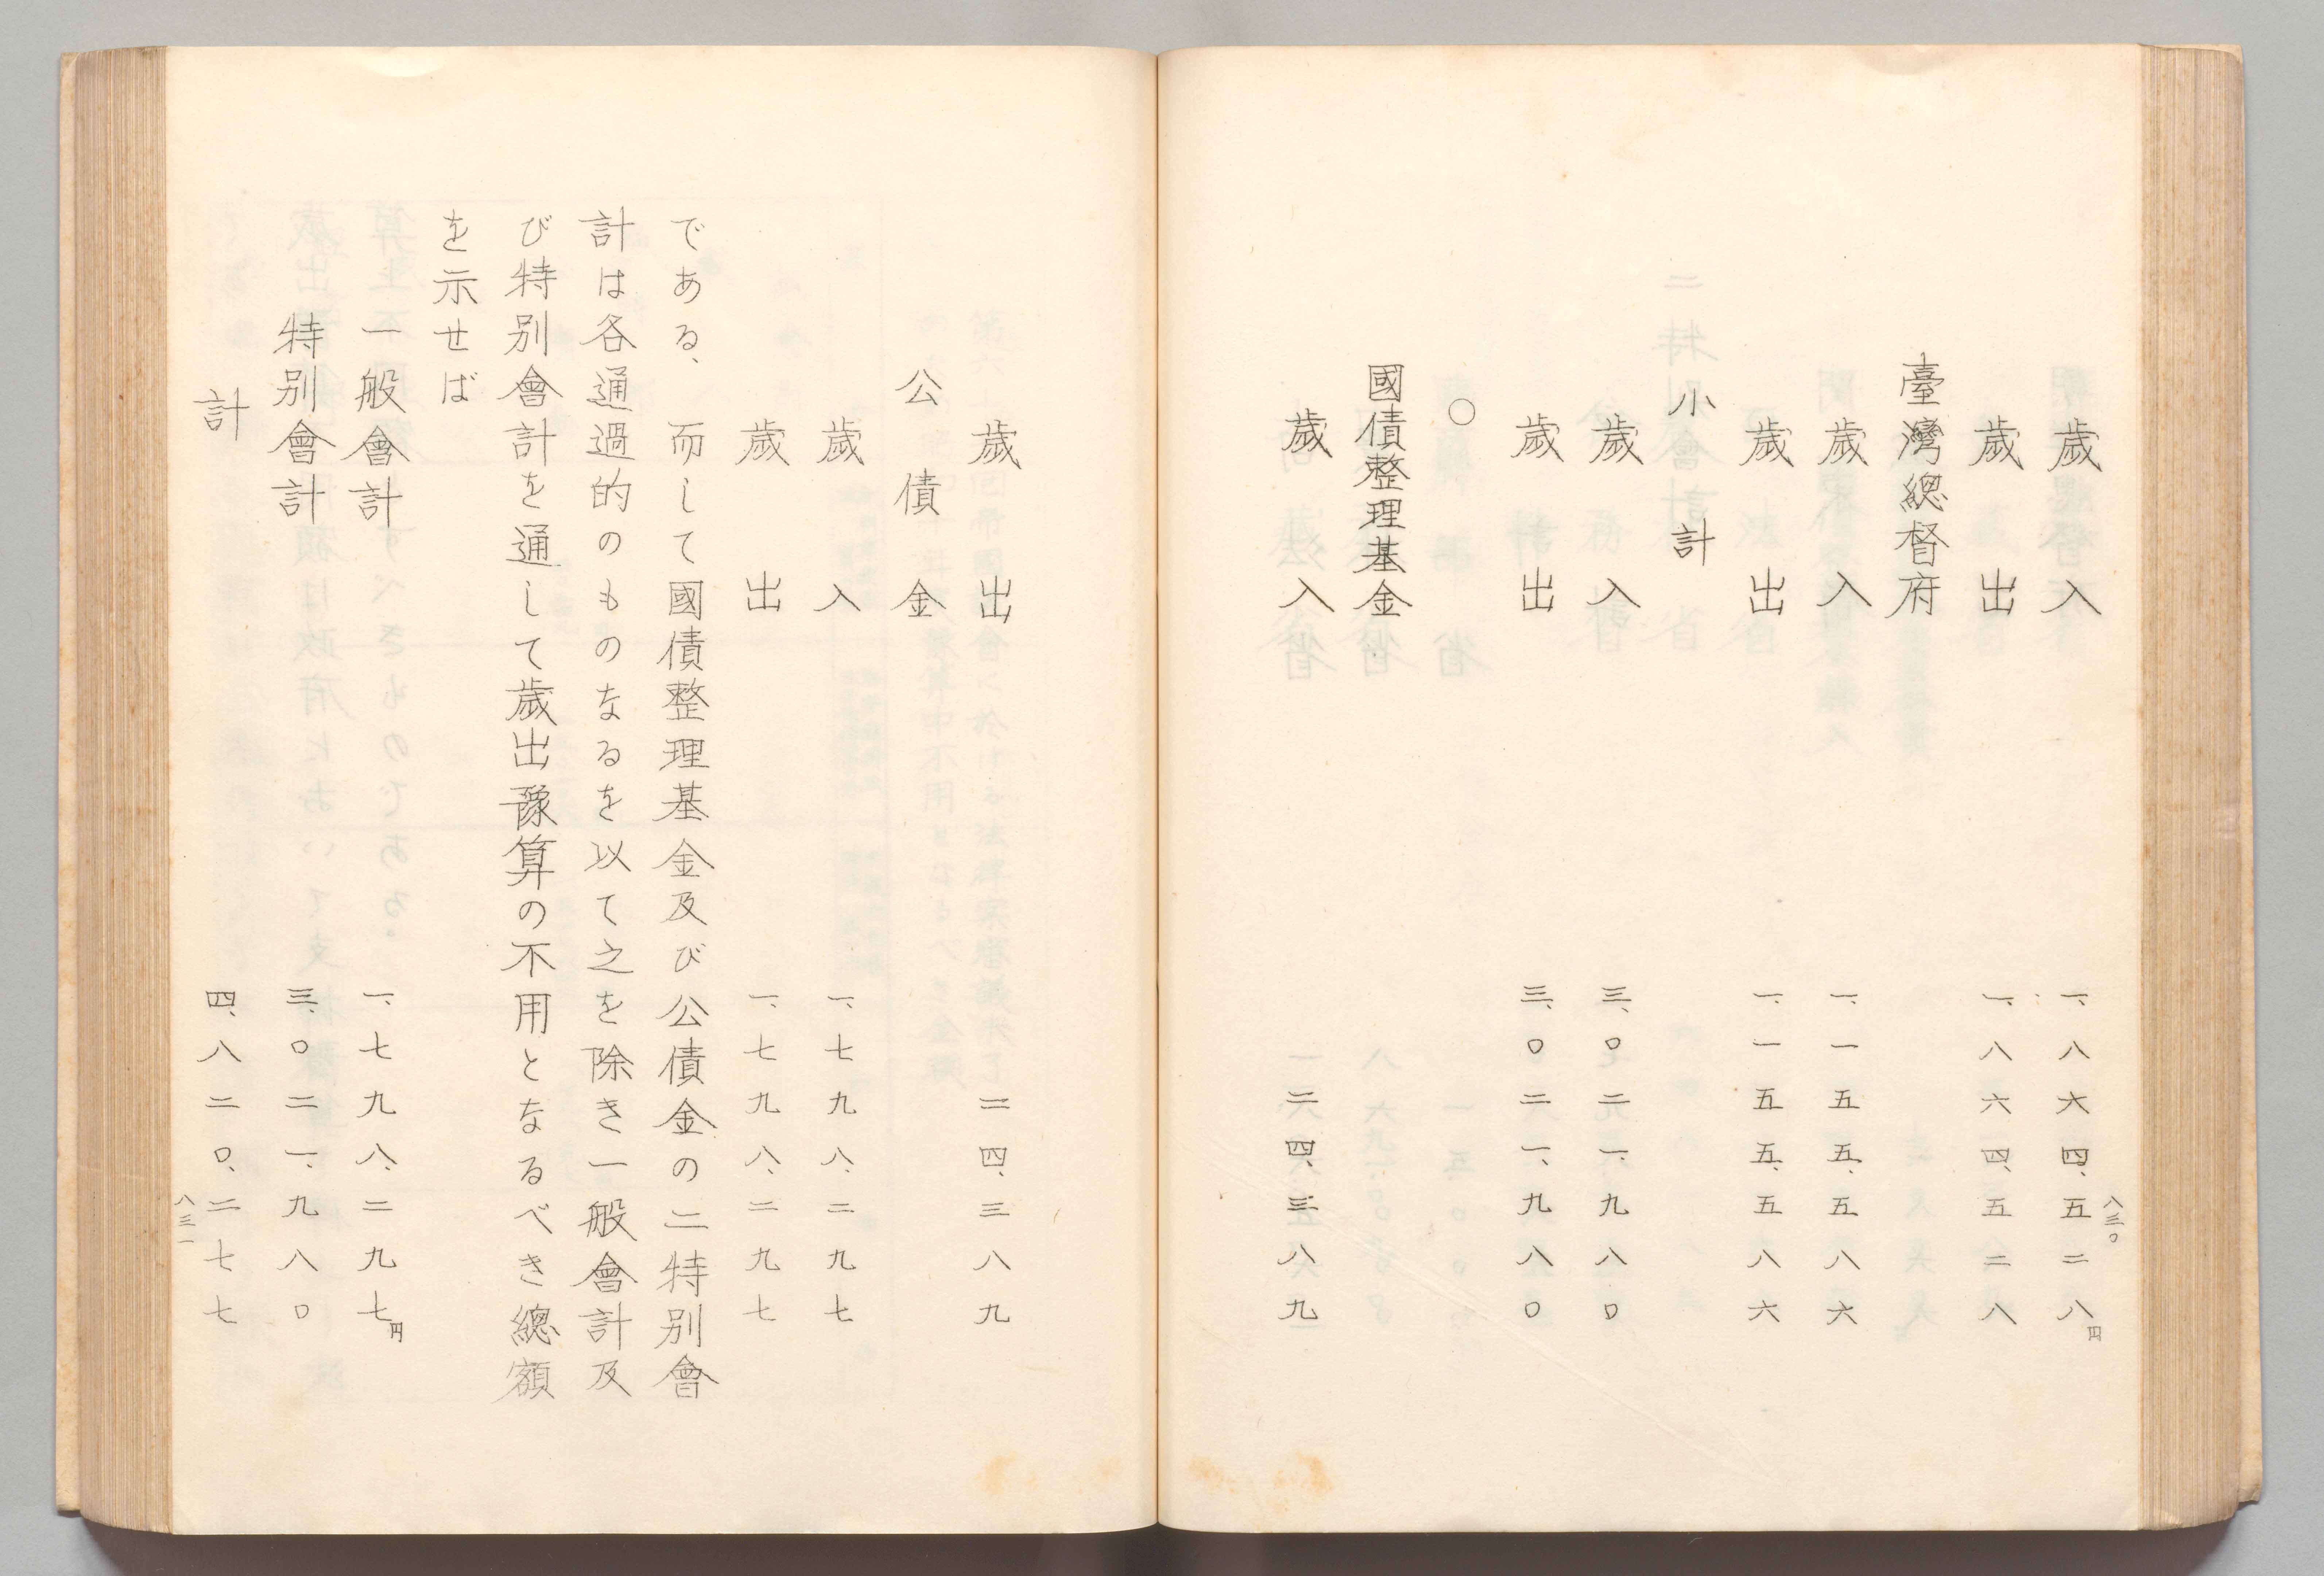 八三〇
歳入 一、八六四、五二八円
歳出 一、八六四、五二八
臺灣總督府
歳入 一、一五五、五八六
歳出 一、一五五、五八六
小計
歳入 三、〇二一、九八〇
歳出 三、〇二一、九八〇
〇
國債整理基金
歳入 二四、三八九
歳出 二四、三八九
公債金
歳入 一、七九八、二九七
歳出 一、七九八、二九七
である、而して國債整理基金及び公債金の二特別會
計は各通過的のものなるを以て之を除き一般會計及
び特別會計を通して歳出豫算の不用となるべき總額
を示せば
一般會計 一、七九八、二九七円
特別會計 三、〇二一、九八〇
計 四、八二〇、二七七
八三一